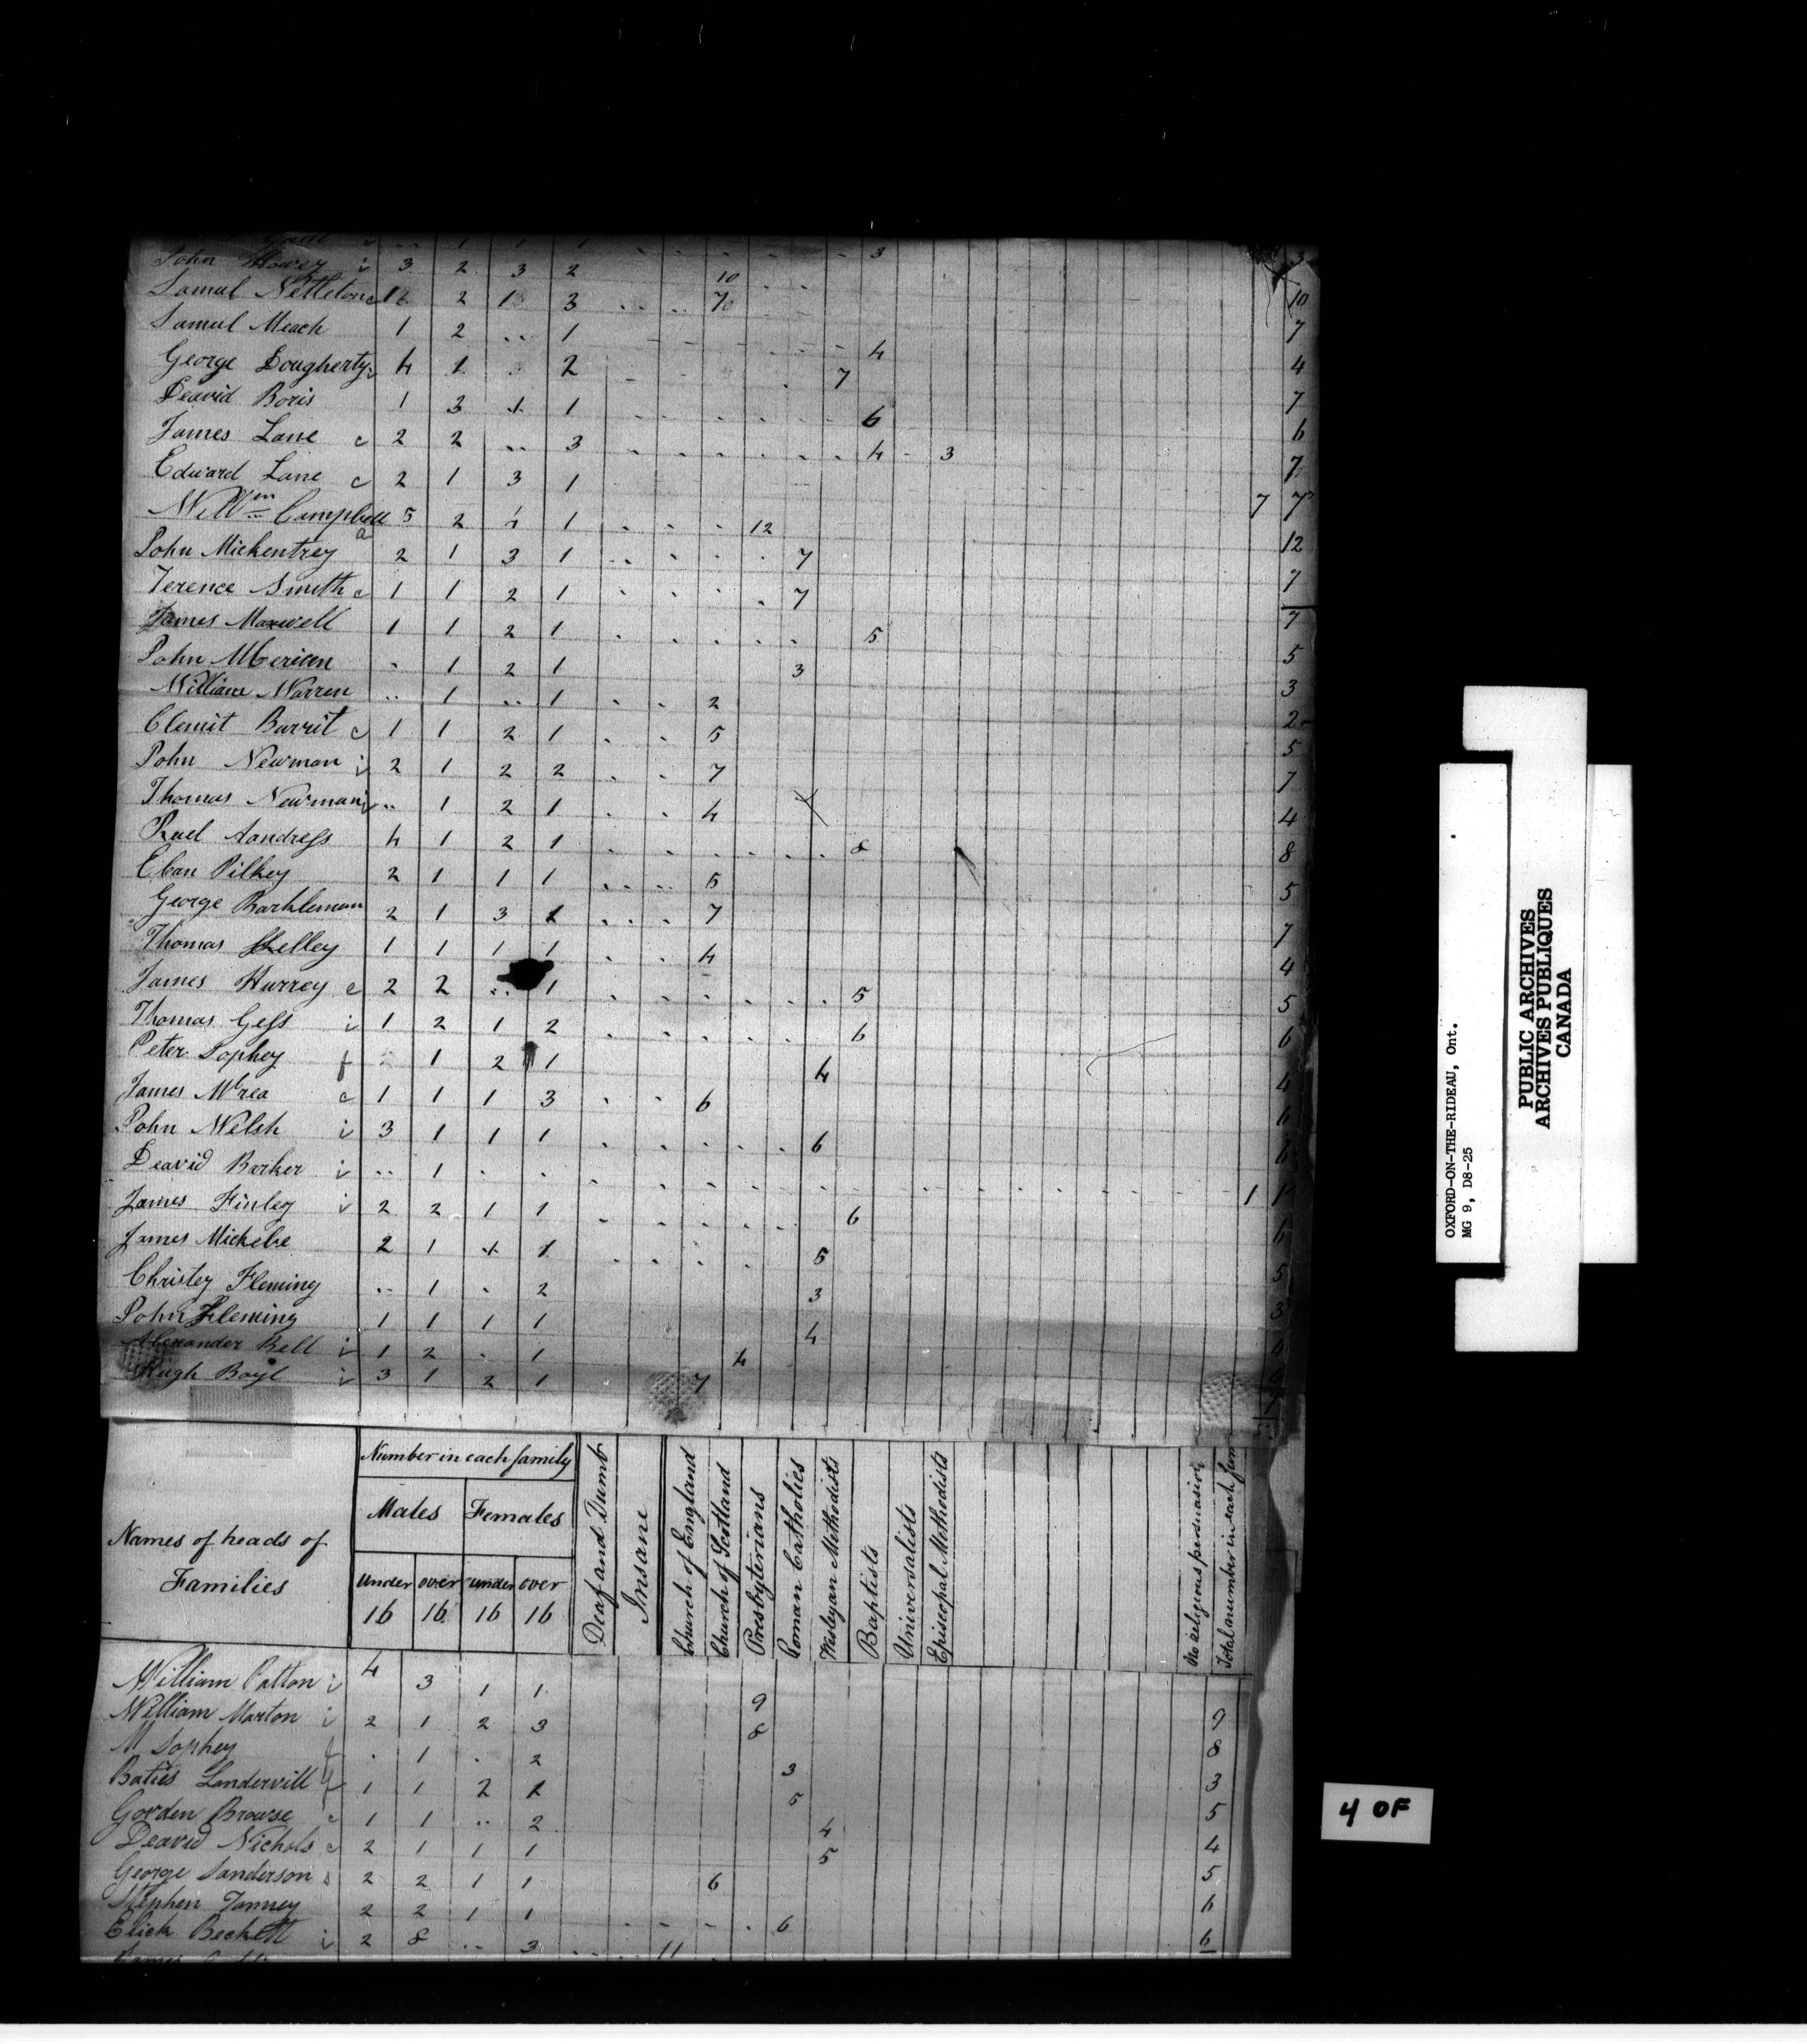 3 3
John Mowey i 3 2 3 2 10 10
Samul Nettleton c 1 2 1 3 7 7
Samuel Meach 1 2 .. 1 4 4
George Dougherty i 4 1 2 7 7
Deavid Boris 1 3 1 1 6 6
James Lane c 2 2 .. 3 4 3 7
Edward Lane c 2 1 3 1 7 7
Will^m Campbell 5 2 4 1 12 12
John Mickentrey 2 1 3 1 7 7
Terence Smith c 1 1 2 1 7 7
James Maxwell 1 1 2 1 5 5
John 1 2 1 3 3
William Warren .. 1 .. 1 2 2
Clemit Barrit c 1 1 2 1 5 5
John Newman i 2 1 2 2 7 7
Thomas Newman i .. 1 2 1 4 4
Ruel Aandress 4 1 2 1 8 8
Eban Pilkey 2 1 1 1 5 5
George Barkleman 2 1 3 1 7 7
Thomas Shelley 1 1 1 1 4 4
James Hurrey c 2 2 .. 1 5 5
Thomas Gess i 1 2 1 2 6 6
Peter Sophey f 1 2 1 4 4
James McRea c 1 1 1 3 6 6
John Welsh i 3 1 1 1 6 6
Deavid Barker i .. 1 . . 1 1
James Finley i 2 2 1 1 6 6
James Mickebe 2 1 1 1 5 5
Christey Fleming .. 1 . 2 3 3
John Fleming 1 1 1 1 4 4
Alexander Bell i 1 2 . 1 4
Hugh Boyl i 3 1 2 1 7 7
Names of heads of Families
Number in each family
Males Females
under 16 over 16 under 16 over 16
Deaf and Dumb
Insane
Church of England
Church of Scotland
Presbyterians
Roman Catholics
Wesleyan Methodists
Baptists
Universalists
Episcopal Methodists
No religious persuasion
Total number in each fam
William Patton i 4 3 1 1 9 9
William Marton i 2 1 2 3 8 8
M Sophey f . 1 . 2 3 3
Baties Landervill f 1 1 2 1 5 5
Gorden Browse c 1 1 .. 2 4 4
Deavid Nichols c 2 1 1 1 5 5
George Sanderson s 2 2 1 1 6 6
Stephen Tanney 2 2 1 1 6 6
Elick Beckett i 2 8 .. 3 11
James
OXFORD-ON-THE-RIDEAU, Ont.
MG 9, D8-25
PUBLIC ARCHIVES
ARCHIVES PUBLIQUES
CANADA
4 OF